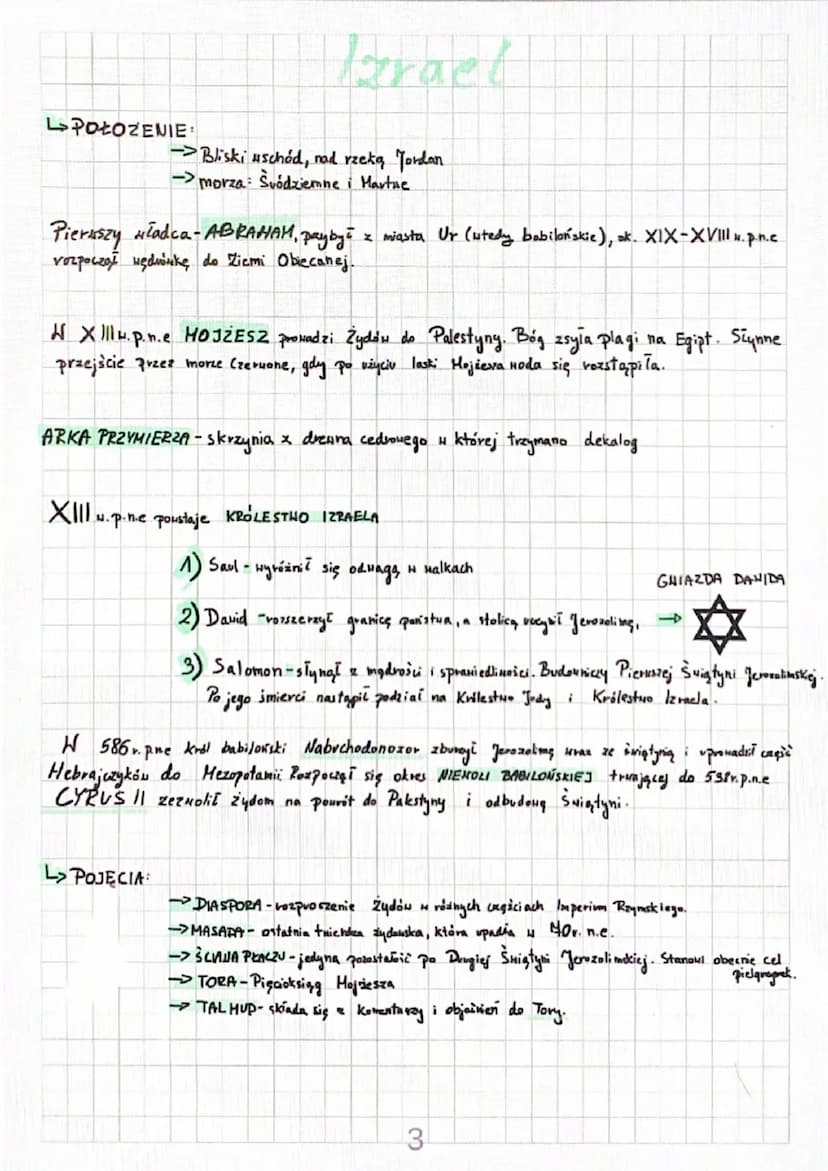 Izrael
↳ POŁOŻENIE:
-> Bliski wschód, nad rzeką Jordan
-> morza: Śródziemne i Martwe
Pierwszy władca - ABRAHAM, przybył z miasta Ur (wtedy babilońskie), ok. XIX-XVIII w. p.n.e
rozpoczął wędrówkę do Ziemi Obiecanej.
W XIII w. p.n.e MOJŻESZ prowadzi Żydów do Palestyny. Bóg zsyła plagi na Egipt. Słynne
przejście przez morze Czerwone, gdy po użyciu laski Mojżesza woda się rozstąpiła.
ARKA PRZYMIERZA - skrzynia z drewna cedrowego w której trzymano dekalog
XIII w. p.n.e powstaje KRÓLESTWO IZRAELA
1) Saul - wyróżnił się odwagą w walkach
GWIAZDA DAWIDA
2) Dawid - rozszerzył granicę państwa, a stolicą uczynił Jerozolimę, ->
3) Salomon - słynął z mądrości i sprawiedliwości. Budowniczy Pierwszej Świątyni Jerozolimskiej.
Po jego śmierci nastąpił podział na Królestwo Judy i Królestwo Izraela.
W 586 r. pne król babiloński Nabuchodonozor zburzył Jerozolimę wraz ze świątynią i uprowadził część
Hebrajczyków do Mezopotamii. Rozpoczął się okres NIEWOLI BABILOŃSKIEJ trwającej do 538r. p.n.e
CYRUS II zezwolił żydom na powrót do Palestyny i odbudowę Świątyni.
↳ POJĘCIA:
-> DIASPORA - rozproszenie Żydów w różnych częściach Imperium Rzymskiego.
-> MASADA - ostatnia twierdza żydowska, która upadła w r. n.e.
-> ŚCIANA PŁACZU - jedyna pozostałość po Drugiej Świątyni Jerozolimskiej. Stanowi obecnie cel
pielgrzymek.
-> TORA - Pięcioksiąg Mojżesza
-> TALMUD - składa się z komentarzy i objaśnień do Tory.
3